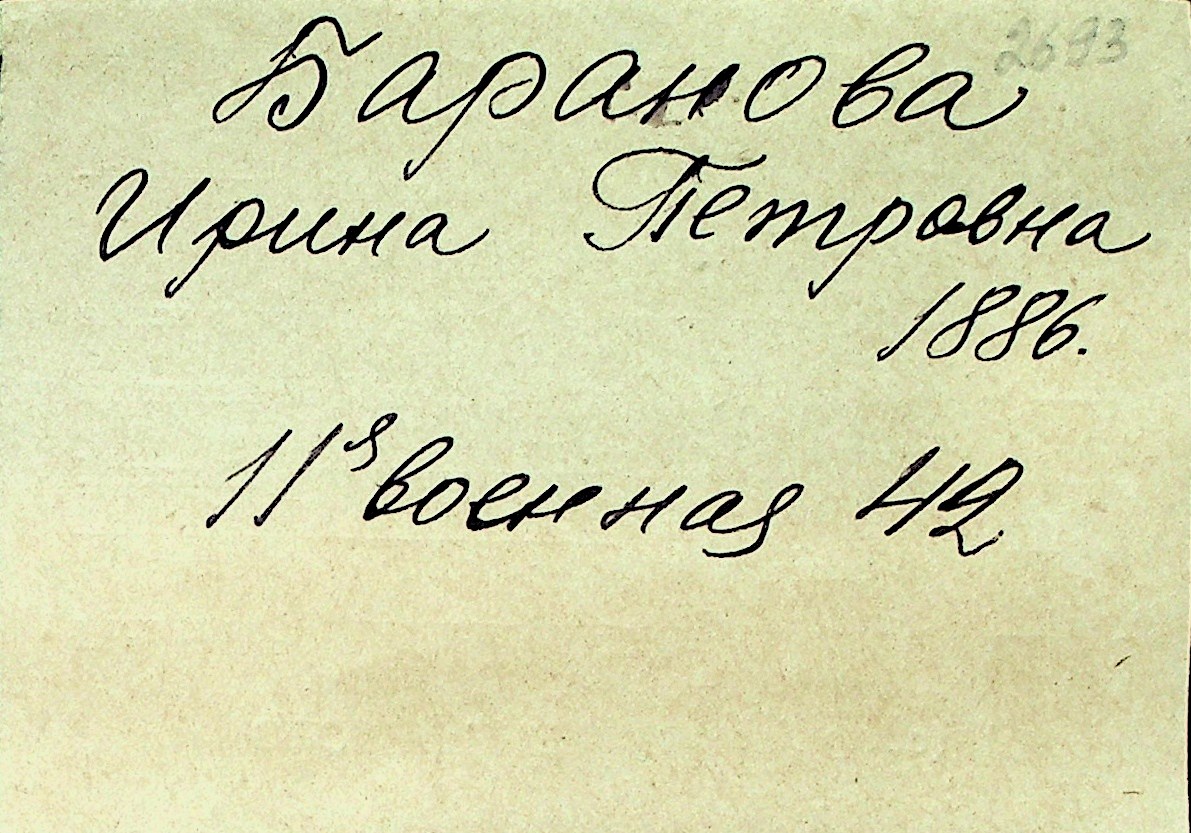 2693
Баранова
Ирина Петровна
1886.
11я военная 42